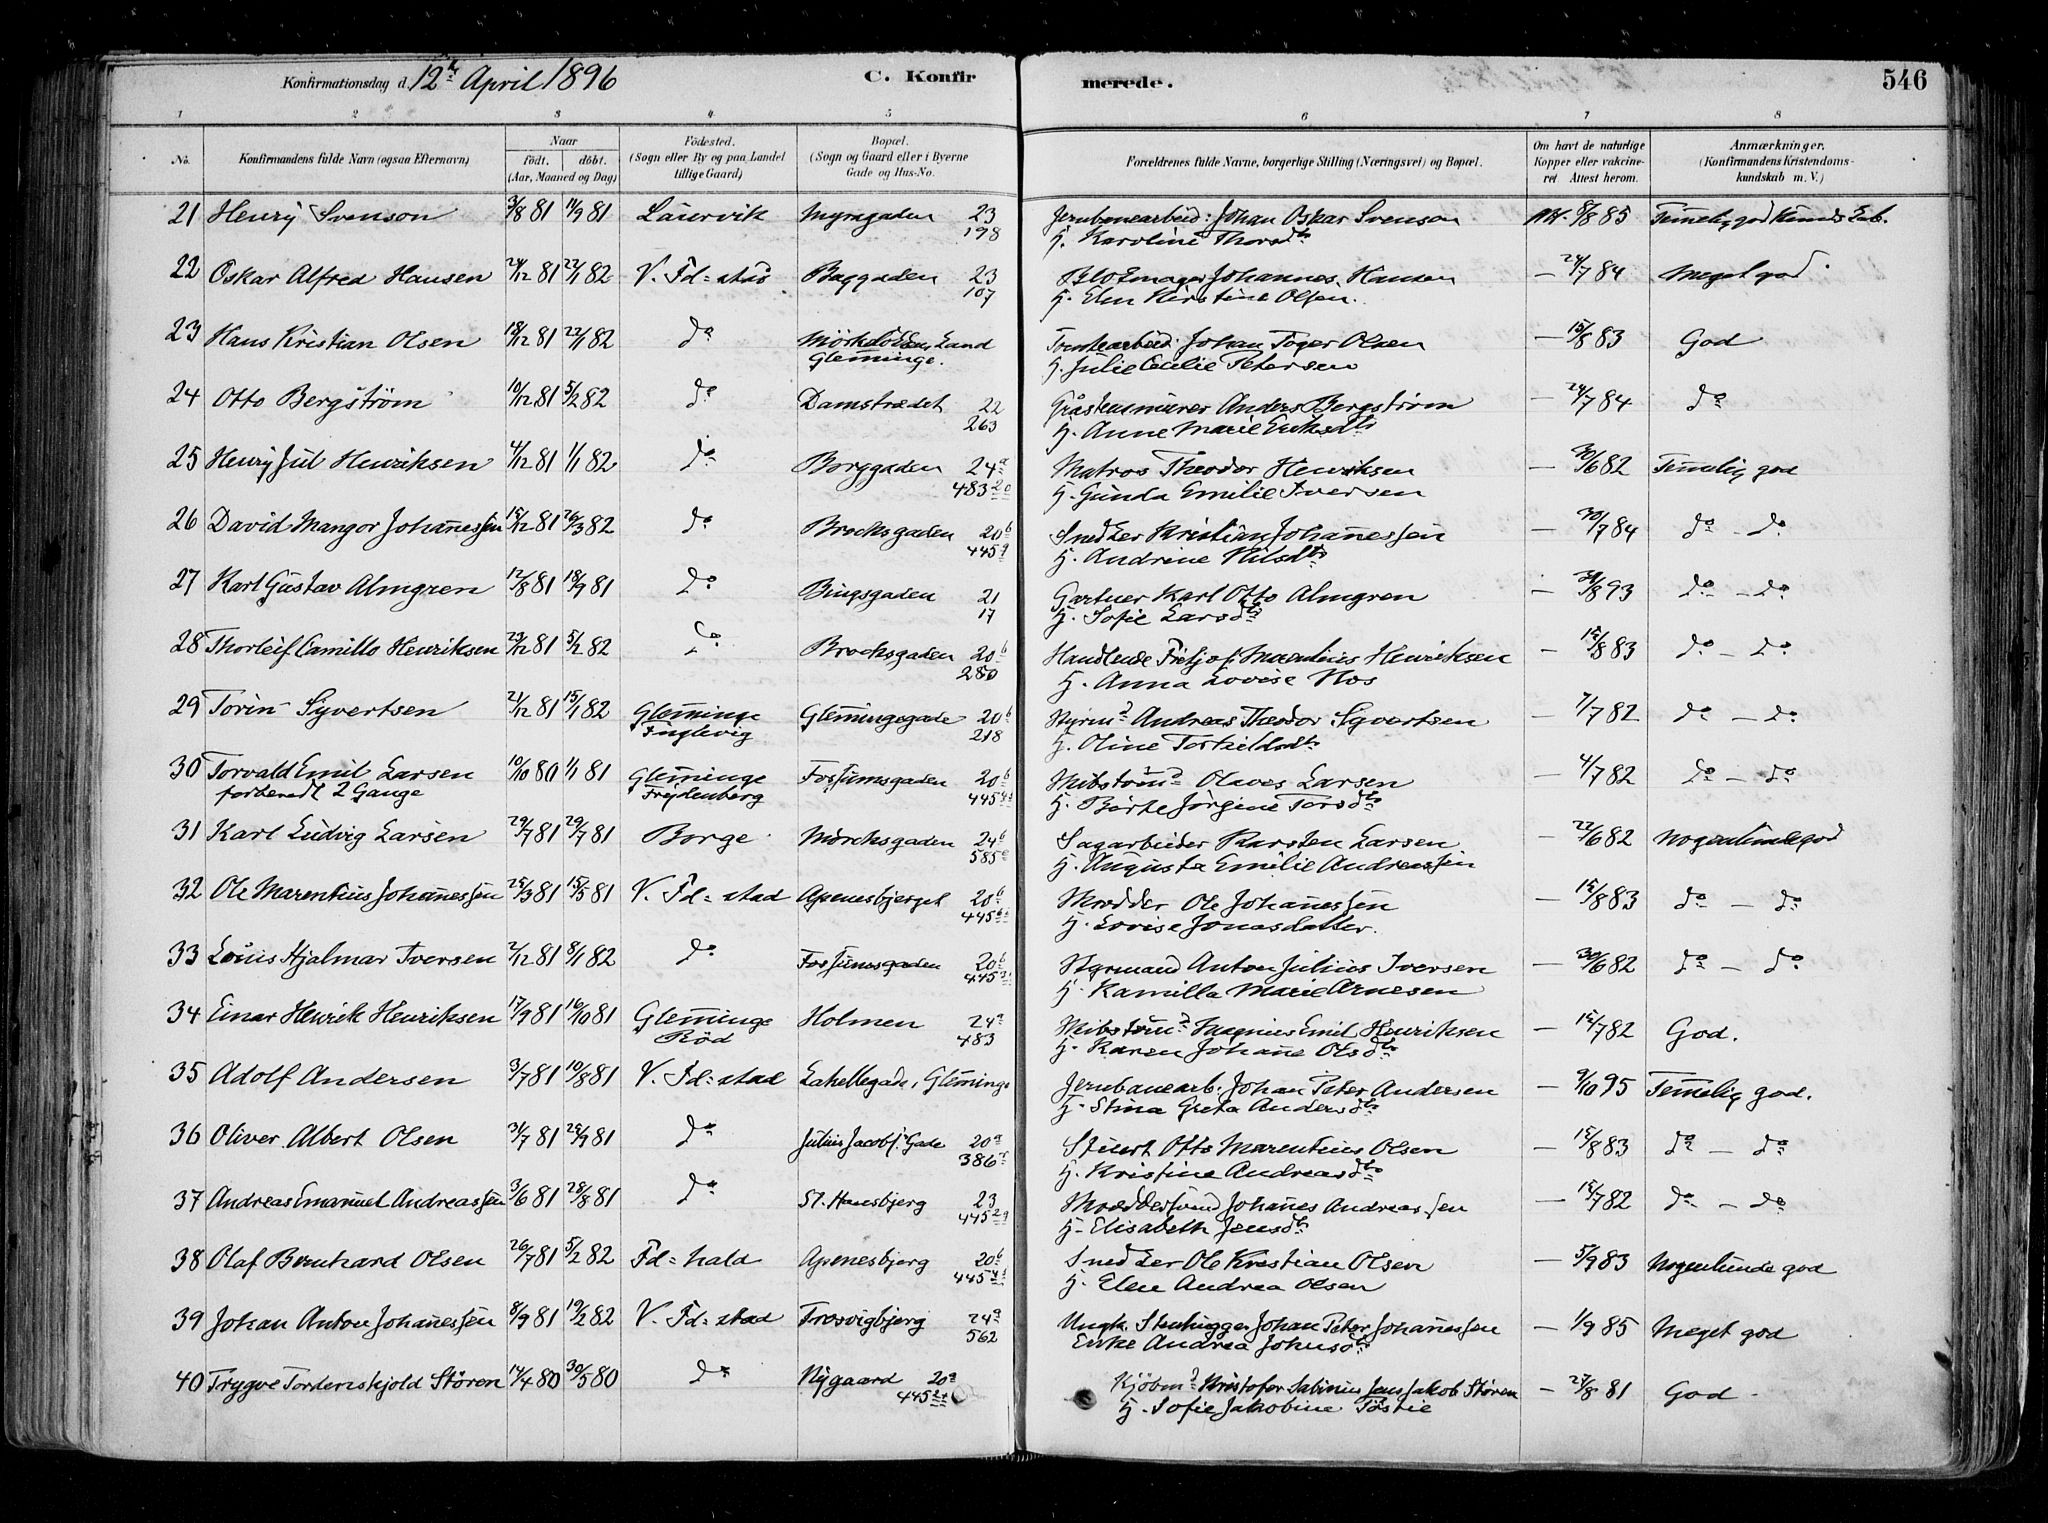 Konfirmationsdag d. 12te April 1896 C. Konfirmerede. 546
1 2 3 4 5 6 7 8
No. Konfirmandens fulde Navn (ogsaa Efternavn) Naar födt. döbt. (Aar, Maaned og Dag) Födested. (Sogn eller By og paa Landet tillige Gaard) Bopæl. (Sogn og Gaard eller i Byerne Gade og Hus-No. Forældrenes fulde Navne, borgerlige Stilling (Næringsvei) og Bopæl. Om havt de naturlige Kopper eller vakcineret Attest herom. Anmærkninger. (Konfirmandens Kristendomskundskab m. V.)
21 Henry Svenson 3/8 81 11/9 81 Laurvik Myragaden 23 Jernbanearbeid: Johan Oskar Svenson 8/8 85 Temmelig god
198 H. Karoline Thorsdtr
22 Oskar Alfred Hansen 24/12 81 22/1 82 V. Fd=stad Baggaden 23 Johannes Hansen — 24/7 84 Meget god
107 H. Elen Kirstine Olsen.
23 Hans Kristian Olsen 18/12 81 22/1 82 do Land Johan Olsen — 15/8 83 God
Glemminge. H. Julie Cecilie Petersen
24 Otto Bergström 10/12 81 5/2 82 do Damstrædet 22 Gråstensmurer Anders Bergström — 24/7 84 do
263 H. Anne Marie Eriksdtr
25 Henry Jul Henriksen 4/12 81 1/1 82 do Borggaden 24a Matros Theodor Henriksen — 30/6 82 Temmelig god
483 20 H. Gunda Emilie Iversen
26 David Mangor Johannessen 15/12 81 26/3 82 do Brocksgaden 20b Snedker Kristian Johannessen — 30/7 84 do - do
445 a H. Andrine Nilsdtr
27 Karl Gustav Almgren 12/8 81 18/9 81 do Bingsgaden 21 Gartner Karl Otto Almgren — 31/8 93 do - do
17 H. Sofie Larsdtr
28 Thorleif Camillo Henriksen 29/12 81 5/2 82 do Brocksgaden 20b Handlende Fritjof Marentius Henriksen — 15/8 83 do - do
280 H. Anna Lovise Nos
29 Torin Syvertsen 21/12 81 15/1 82 Glemminge Glemmingegade 20b Styrmd Andreas Theodor Syvertsen — 7/7 82 do - do
Fuglevig 218 H. Oline Torkildsdtr
30 Torvald Emil Larsen 10/10 80 1/1 81 Glemminge Fossumsgaden 20b Olaves Larsen — 4/7 82 do - do
forberedt 2 Gange Frydenberg 445 H. Birte Jörgine Torsdtr
31 Karl Ludvig Larsen 29/7 81 29/7 81 Borge Mörcksgaden 24b Sagarbeider Karsten Larsen — 22/6 82 Nogenlunde god
585 H. Augusta Emilie Andreassen
32 Ole Marentius Johannessen 25/3 81 15/5 81 V. Fd=stad Apenesbjerget 20b Skrædder Ole Johannessen — 15/8 83 do - do
445 H. Lovise Jonasdatter.
33 Louis Hjalmar Iversen 2/12 81 8/1 82 do Fossumsgaden 20b Styrmand Anton Julius Iversen — 30/6 82 do - do
445 H. Kamilla Marie Arnesen
34 Einar Henrik Henriksen 17/9 81 16/10 81 Glemminge Holmen 24a Magnus Emil Henriksen — 15/7 82 God.
Röd 483 H. Karen Johanne Olsdtr
35 Adolf Andersen 3/7 81 10/8 81 V. Fd=stad Lahellegade, Glemminge Jernbanearb. Johan Peter Andersen — 9/10 95 Temmelig god.
H. Stina Greta Andersdtr
36 Oliver Albert Olsen 31/7 81 25/9 81 do Julius Jacobs. Gade 20a Stuert Otto Marentius Olsen — 15/8 83 do - do
386 H. Kristine Andreasdtr
37 Andreas Emanuel Andreassen 3/6 81 28/8 81 do St. Hansbjerg 23 Skræddersvend Johannes Andreassen — 15/7 82 do - do
445 H. Elisabeth Jensdtr
38 Olaf Bernhard Olsen 26/7 81 5/2 82 Fd=hald Apenesbjerg 20b Snedker Ole Kristian Olsen — 5/9 83 Nogenlunde god
445 H. Elen Andrea Olsen
39 Johan Anton Johannessen 8/9 81 19/2 82 V. Fd=stad Trosvigbjerg 24a Ungk. Stenhugger Johan Peter Johannessen — 1/9 85 Meget god
562 Enke Andrea Johnsdtr
40 Trygve Tordenskjold Stören 14/4 80 30/5 80 do Nygaard 20a Kjöbmd Kristofer Sabinius Jens Jakob Stören — 27/8 81 God
445 H. Sofie Jakobine Tostie